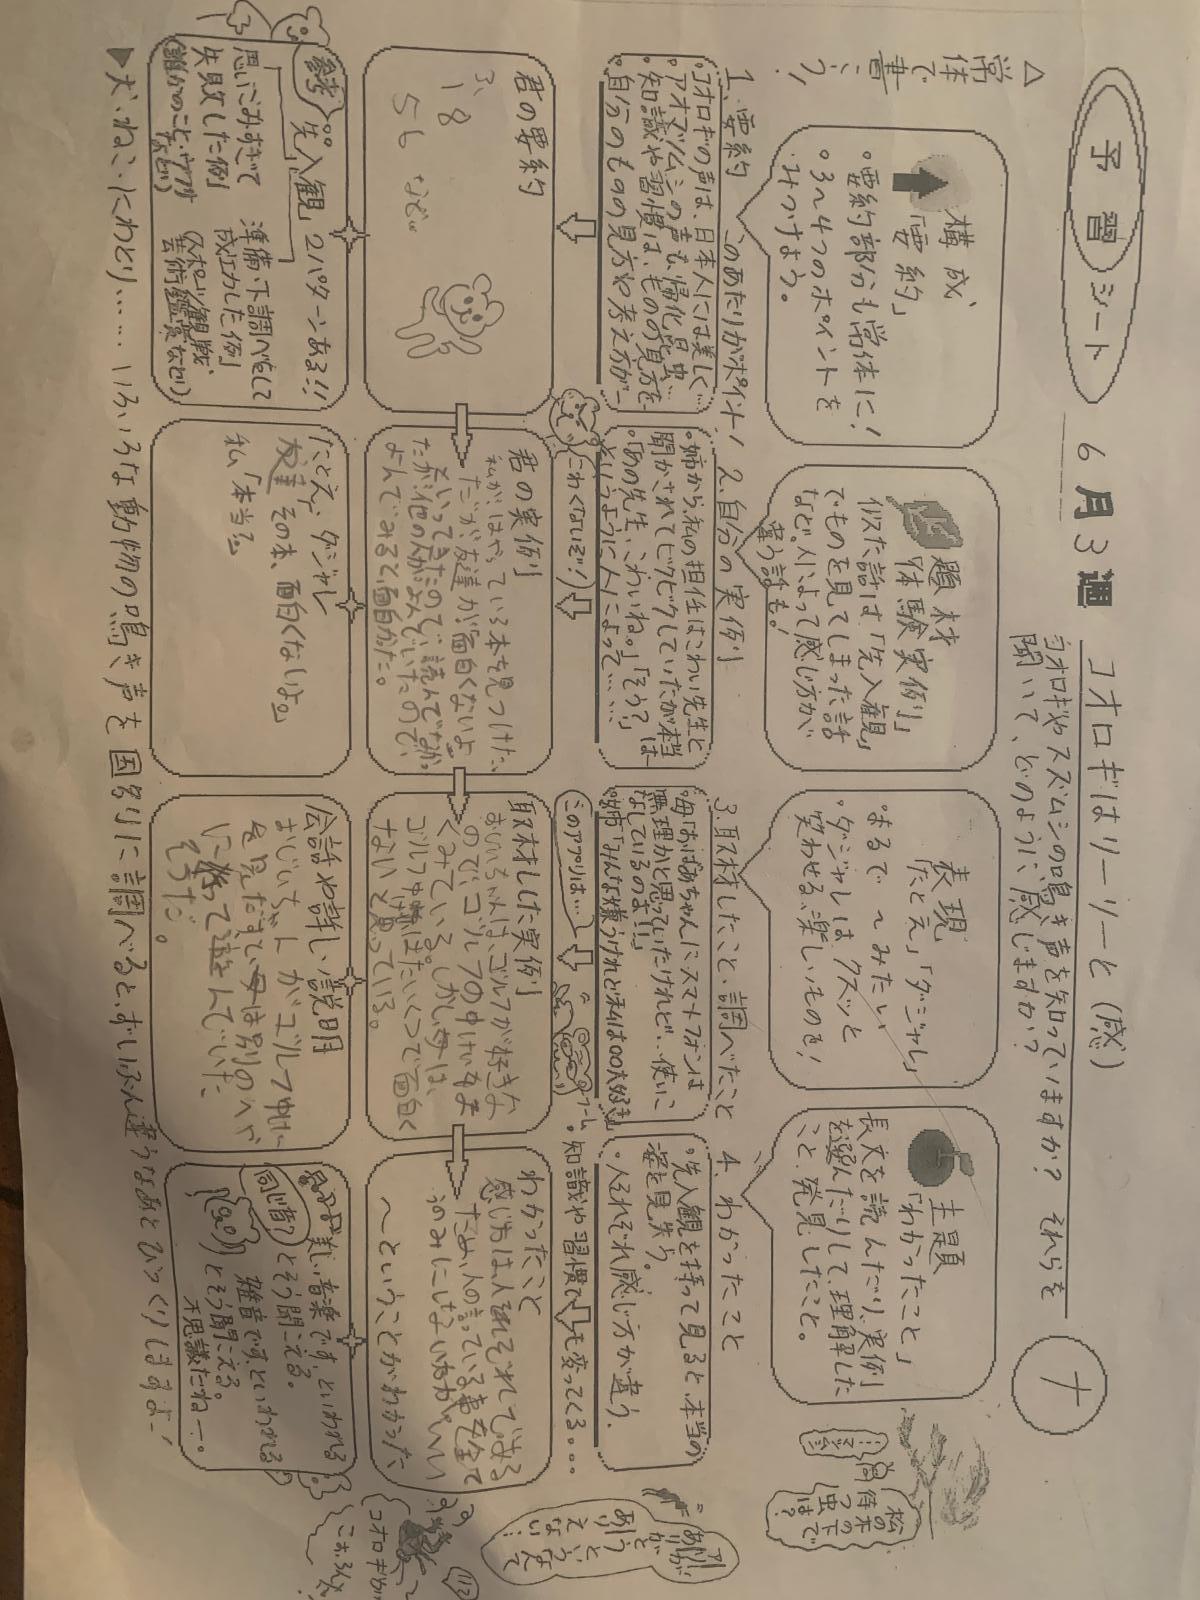 予習シート
6月3週
コオロギはリーリーと(感)
コオロギやスズムシの鳴き声を知っていますか? それらを
聞いて、どのように感じますか?
ナ
△
常体で書こう!
構成
「要約」
・要約部分も常体に!
・3~4つのポイントを
みつけよう。
題材
「体験実例」
似た話は、「先入観」
でものを見てしまった話
など。人によって感じ方が
違う話も!
表現
「たとえ」「ダジャレ」
・まるで~みたい
・ダジャレは、クスッと
笑わせる、楽しいものを!
主題
「わかったこと」
長文を読んだり、実例
を選んだりして、理解した
こと、発見したこと。
1. 要約 このあたりがポイント!
・コオロギの声は、日本人には美しく…
・アオマツムシの声も、帰化昆虫…
・知識や習慣は、ものの見方を…
・自分のものの見方や考え方が…
2. 自分の実例
・姉から、私の担任はこわい先生と
聞かされてビクビクしていたが本当は
・「あの先生、こわいね。」「そう?」
というように人によって……
3. 取材したこと、調べたこと
・母「おばあちゃんにスマートフォンは
無理かと思っていたけれど…使いこ
なしているのよ!!」
・姉「みんな嫌うけれど私は○○大好き」
4. わかったこと
・先入観を持って見ると、本当の
姿を見失う。
・人それぞれ感じ方が違う。
・知識や習慣で
も変ってくる。。。
こわくないぞ!
このアプリは…
君の要約
3、
18
56 など
君の実例
私が、はやっている本を見つけた。
だが、友達が「面白くないよ」
といってきたので、読んでなかっ
たが、他の人がよんでいたので、
よんでみると、面白かた。
取材した実例
おじいちゃんは、ゴルフが好きな
ので、ゴルフの中けいをよ
くみている。しかし、母は、
ゴルフ中けいはたいくつで面白く
ないと思っている。
わかったこと
感じ方は人それぞれしてはある
ため、人の言っている事を全て
うのみにしないほうがいい
~ということがわかった
参考
「先入観」2パターンある!!
思いこみすぎて
失敗した例
(誰かのこと、ウワサ
など)
準備、下調べをして
成功した例
(スポーツ観戦、
芸術鑑賞など)
たとえ、ダジャレ
友達「その本、面白くないよ。」
私「本当?」
会話や詳しい説明
おじいちゃんがゴルフ中けい
を見だすと、母は別のへや
に移って
そうだ。
美しい音楽です、といわれる
とそう聞こえる。
同じ音?
雑音です、といわれる
とそう聞こえる。
不思議だねー。
▶犬、ねこ、にわとり…… いろいろな動物の鳴き声を国別に調べると、ずいぶん違うなあとびっくりしますよ!
松の木の下で
待つ虫は?